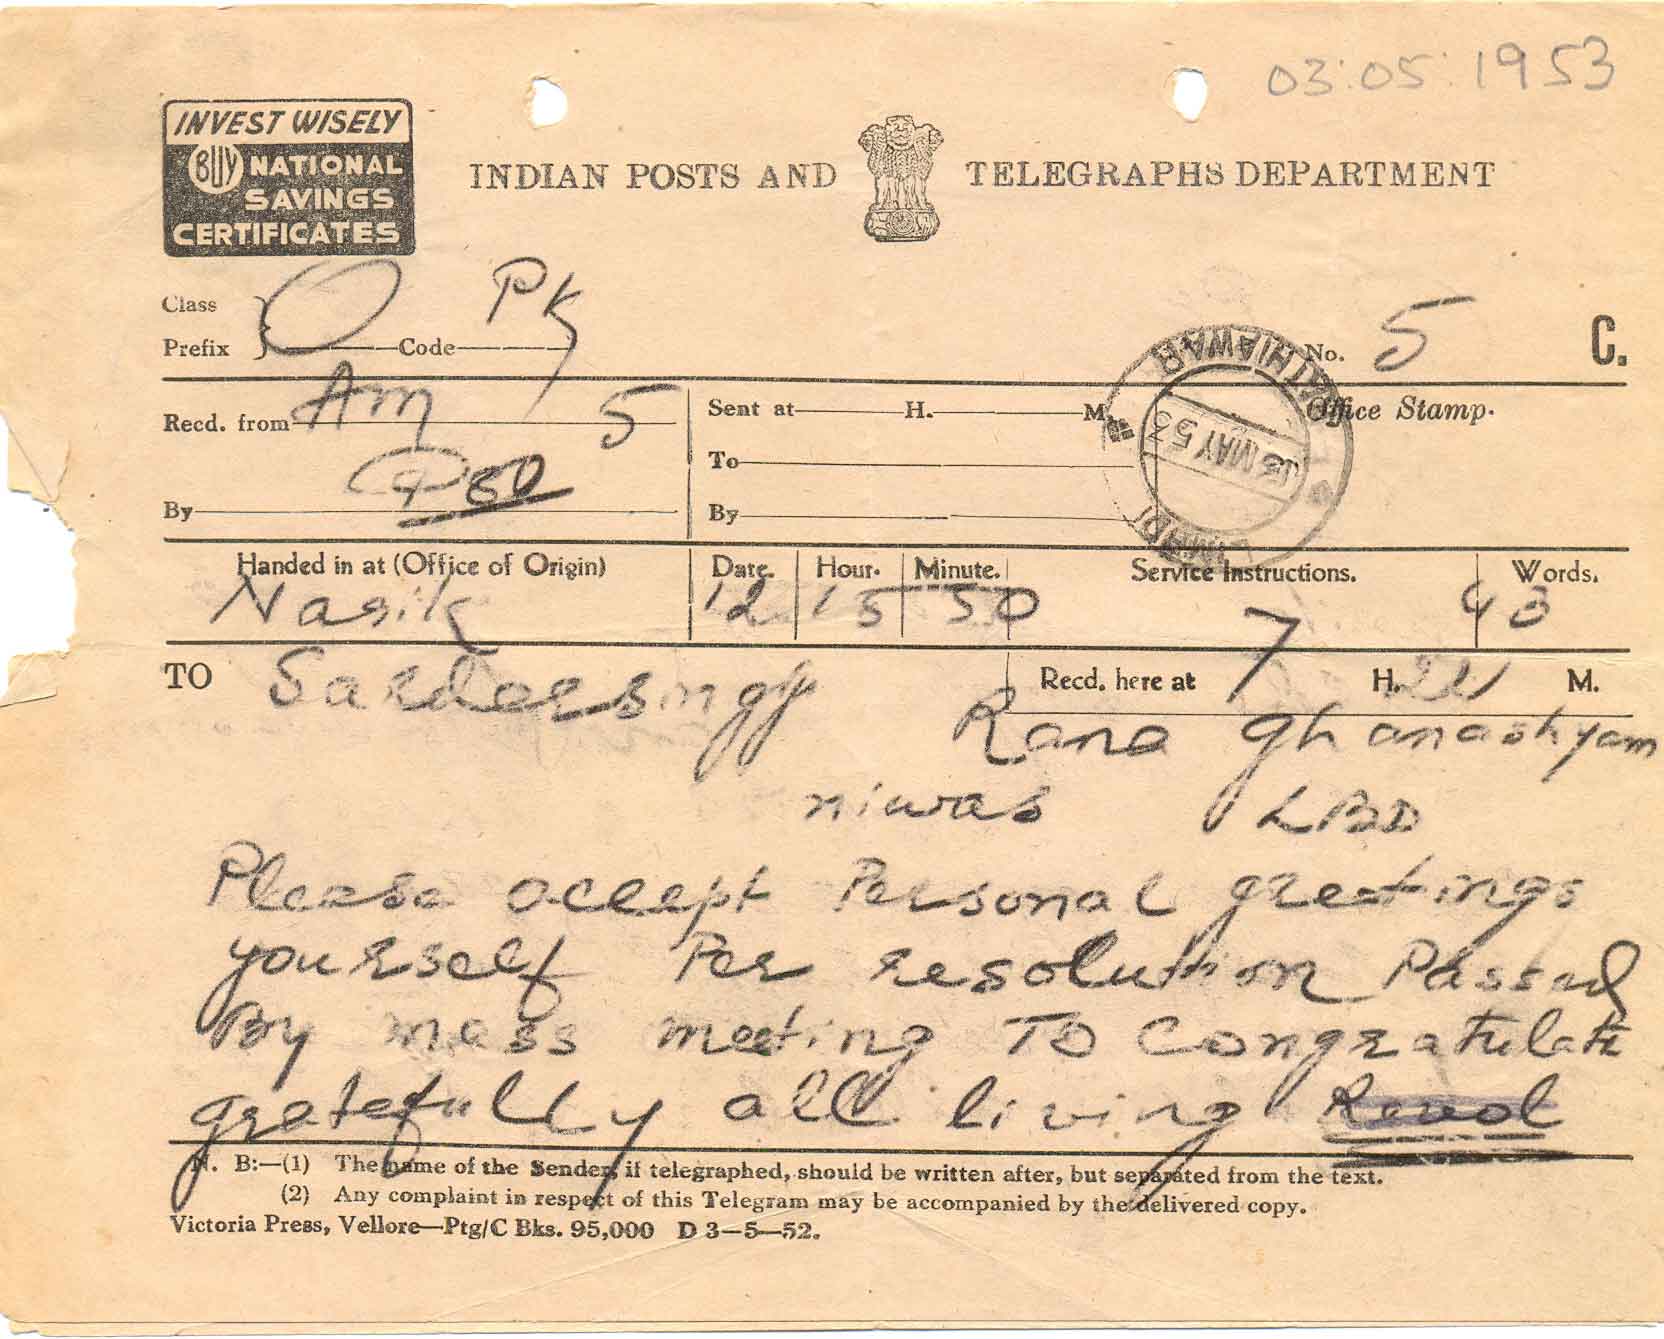 03:05:1953
INVEST WISELY
BUY NATIONAL
SAVINGS
CERTIFICATES
INDIAN POSTS AND TELEGRAPHS DEPARTMENT
Class
Prefix O Code Pk No. 5 C.
Recd. from Am 5 Sent at H. M. Office Stamp.
To
By By
KATHIAWAR
13 MAY 53
Handed in at (Office of Origin) Date. Hour. Minute. Service Instructions. Words.
Nasik 12 15 50 43
TO Sardersingji Recd. here at 7 H. M.
Rana Ghanashyam
niwas LBD
Please accept Personal greetings
yourself Per resolution Passed
By mass meeting To Congratulate
gratefully all living Revol
N. B:—(1) The name of the Sender, if telegraphed, should be written after, but separated from the text.
(2) Any complaint in respect of this Telegram may be accompanied by the delivered copy.
Victoria Press, Vellore—Ptg/C Bks. 95,000 D 3—5—52.